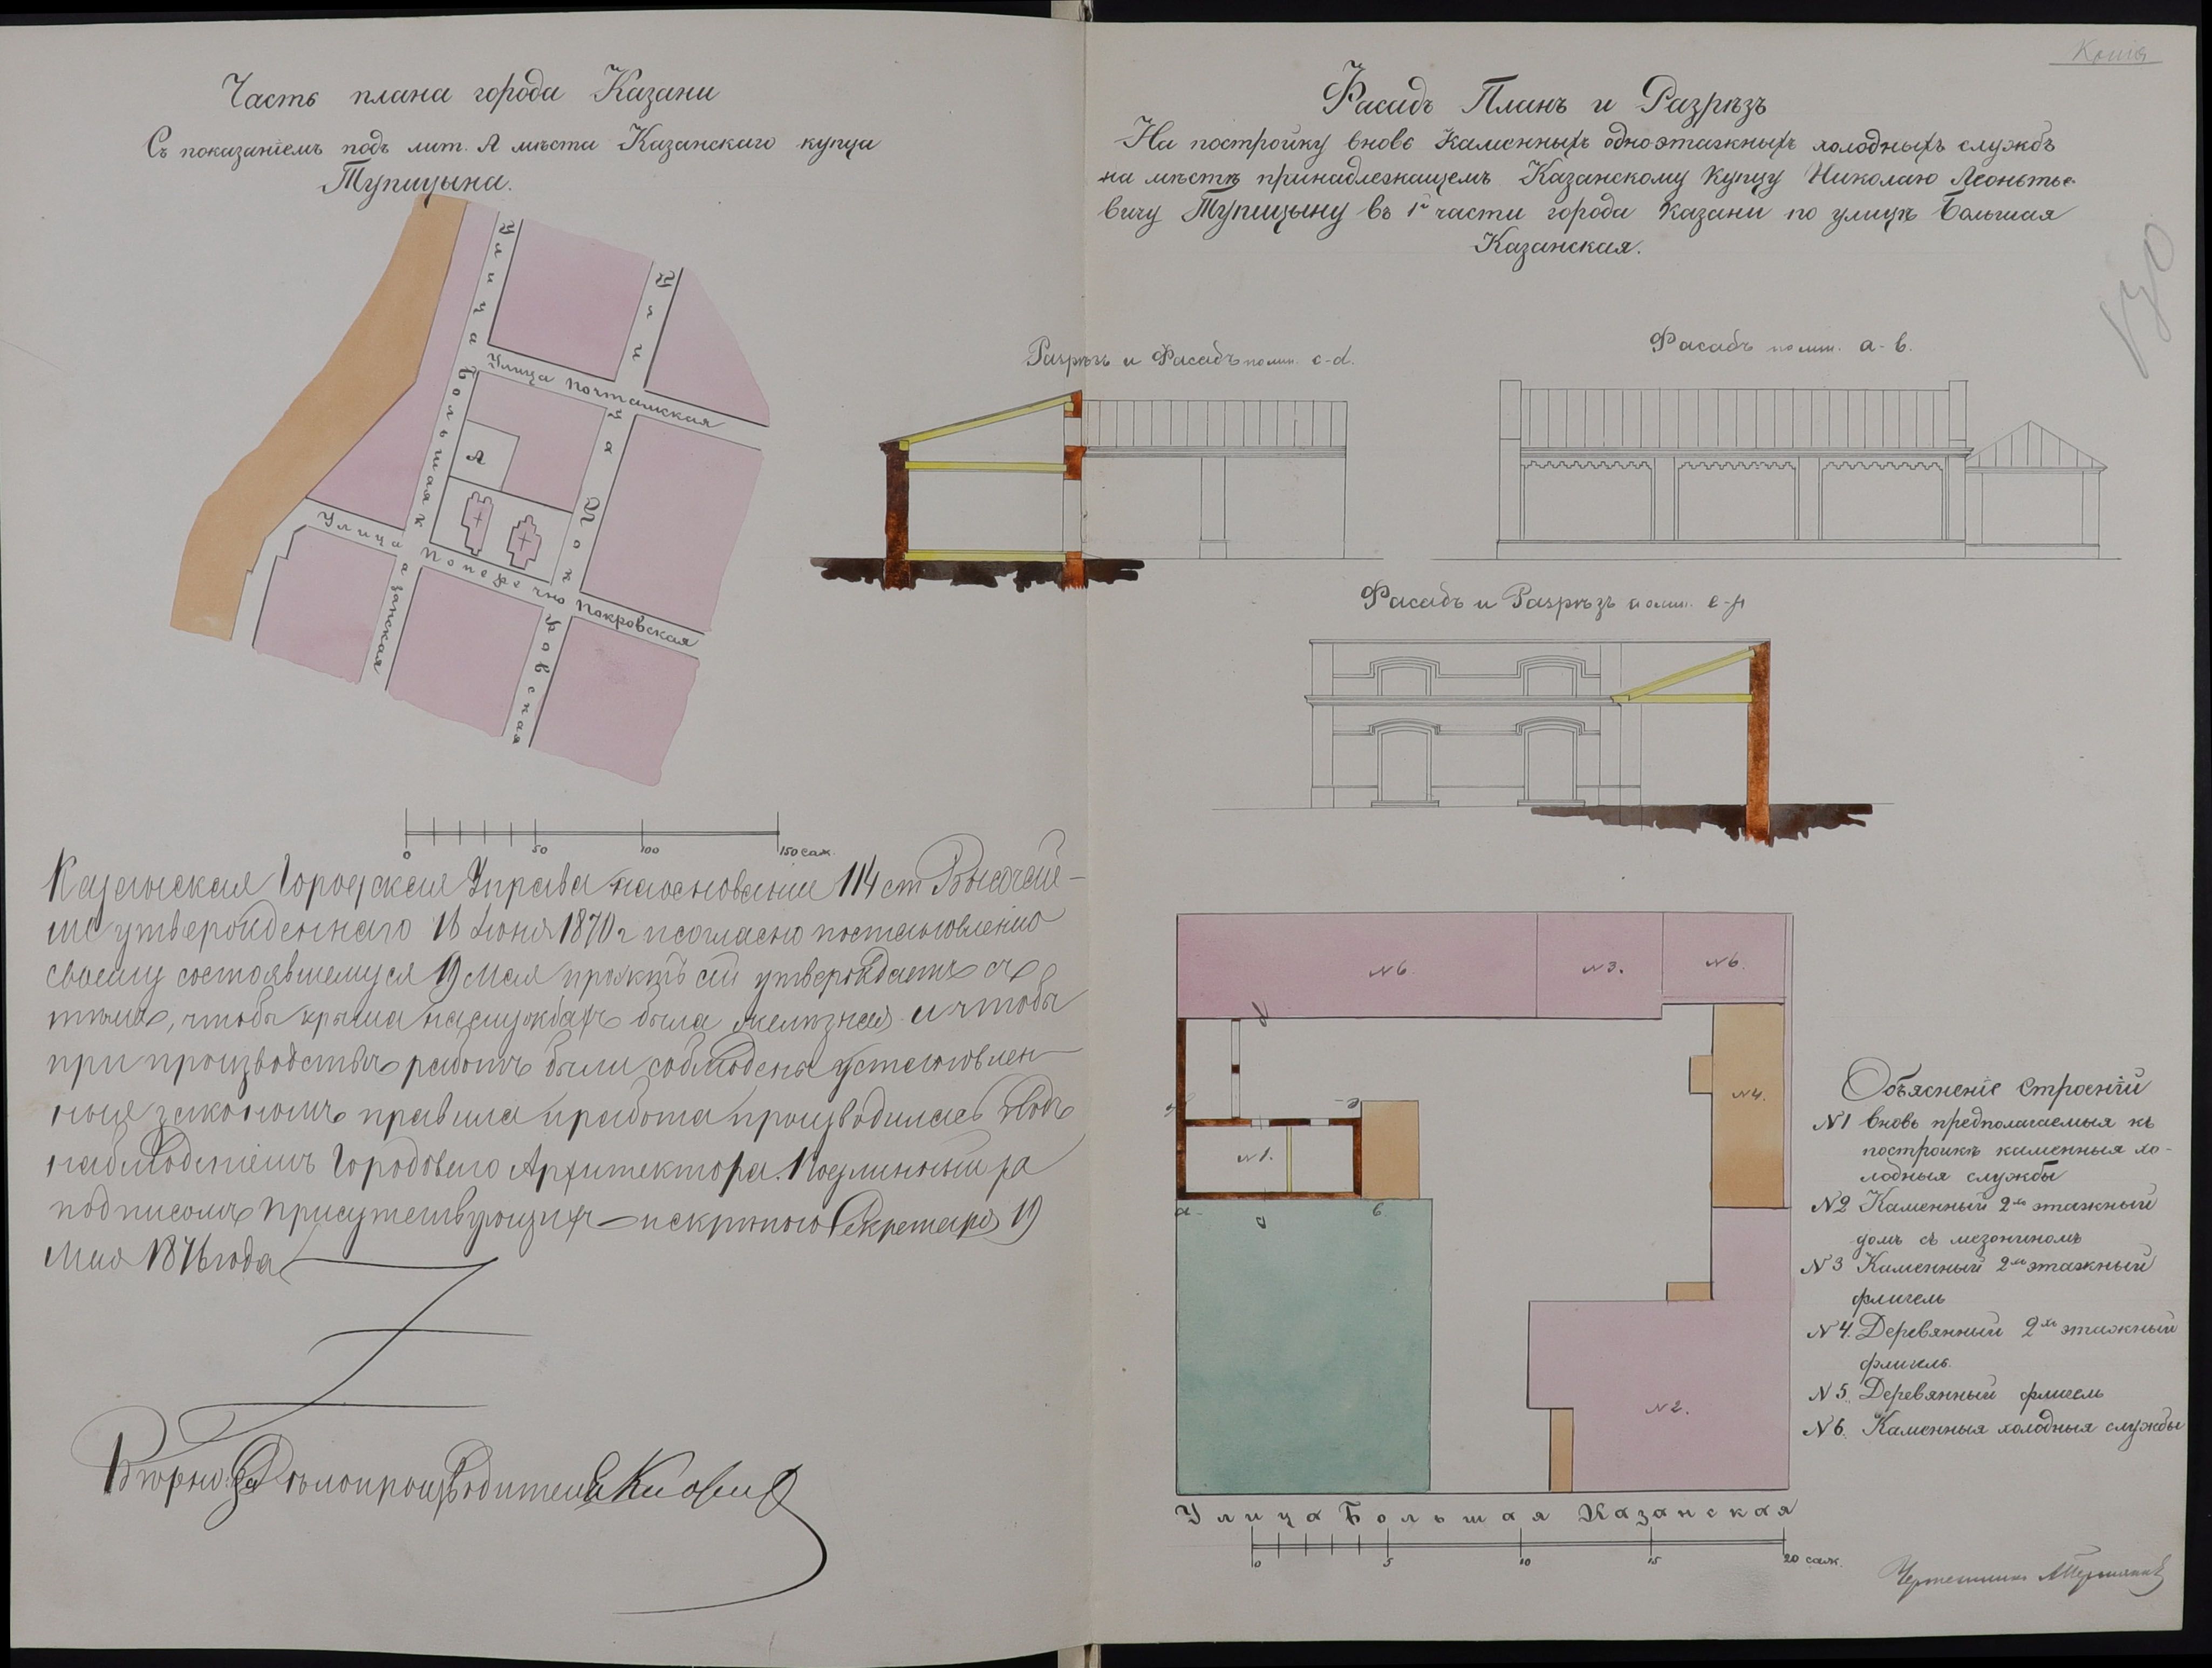 Часть плана города Казани
Съ показаніемъ подъ лит. А мѣста Казанскаго купца
Тупицына.
Улица Большая Казанская
Улица Почтамская
Улица Покровская
Улица Поперечно Покровская
А
0 50 100 150 саж.
Казанская Городская Управа на основаніи 114 ст Высочай-
ше утвержденнаго 16 Іюня 1870 г и согласно постановленію
своему состоявшемуся 19 Мая проэктъ сей утверждаетъ съ
тѣмъ, чтобы крыша на службахъ была желѣзная и чтобы
при производствѣ работъ были соблюдены установлен-
ныя закономъ правила и работа производилась подъ
наблюденіемъ Городового Архитектора. Подлинный за
подписомъ Присутствующихъ и скрѣпою Секретаря 19
Мая 1876 года
Вѣрно: За Дѣлопроизводителя
Копія
Фасадъ Планъ и Разрѣзъ
На постройку вновь Каменныхъ одноэтажныхъ холодныхъ службъ
на мѣстѣ принадлежащемъ Казанскому Купцу Николаю Леонтье-
вичу Тупицыну въ 1й части города Казани по улицѣ Большая
Казанская.
130
Разрѣзъ и Фасадъ по лин. c-d.
Фасадъ по лин. a-b.
Фасадъ и Разрѣзъ по лин. e-f
N6.
N3.
N6.
N4.
N1.
a
b
N2.
Улица Большая Казанская
0 5 10 15 20 саж.
Объясненіе Строеній
N1 Вновь предполагаемыя къ
постройкѣ каменныя хо-
лодныя службы
N2 Каменный 2хъ этажный
домъ съ мезониномъ
N3 Каменный 2хъ этажный
флигель
N4. Деревянный 2хъ этажный
флигель.
N5. Деревянный флигель
N6. Каменныя холодныя службы
Чертежникъ